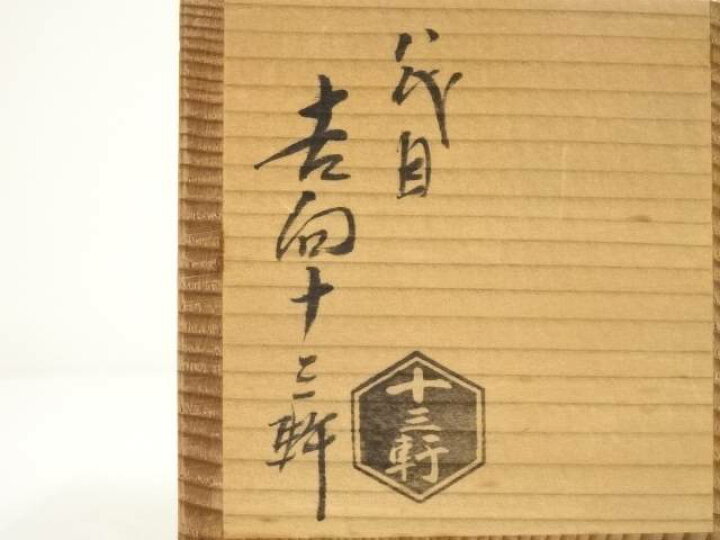 八代目
吉向十三軒
十三軒